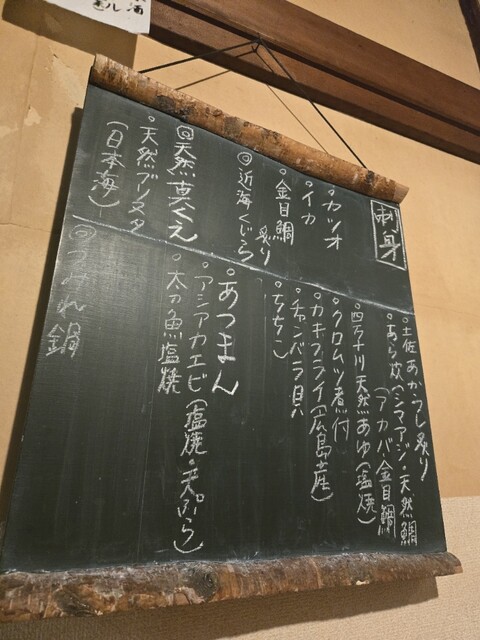 刺身
・カツオ
・イカ
・金目鯛
炙り
◎近海くじら
◎天然真くえ
・天然ブリヌタ
(日本海)
・土佐あかうし炙り
・あら炊(シマアジ・天然鯛
(アカバ・金目鯛)
・四万十川天然あゆ(塩焼)
・クロムツ煮付
・カキフライ(広島産)
・チャンバラ貝
・ちちこ
・あつまん
・アシアカエビ(塩焼・天ぷら)
・太刀魚塩焼
◎つみれ鍋